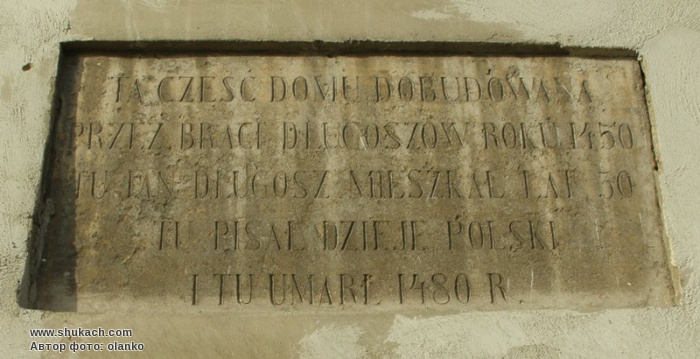 TA CZĘŚĆ DOMU DOBUDOWANA
PRZEZ BRACI DŁUGOSZÓW ROKU 1450
TU JAN DŁUGOSZ MIESZKAŁ LAT 30
TU PISAŁ DZIEJE POLSKI
I TU UMARŁ 1480 R
www.shukach.com
Автор фото: olanko